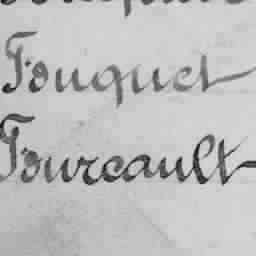 Fouquet
Fourcault